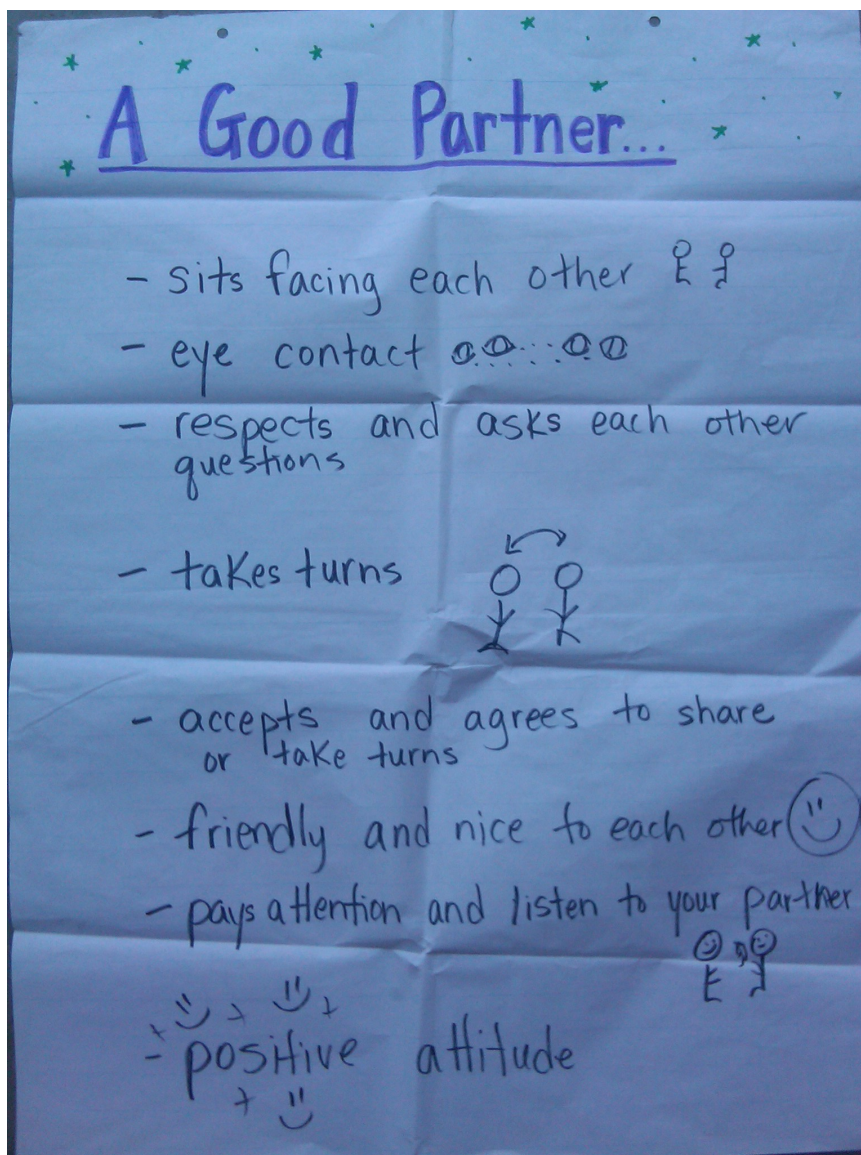 A Good Partner...
- sits facing each other
- eye contact
- respects and asks each other
questions
- takes turns
- accepts and agrees to share
or take turns
- friendly and nice to each other
- pays attention and listen to your partner
- positive attitude